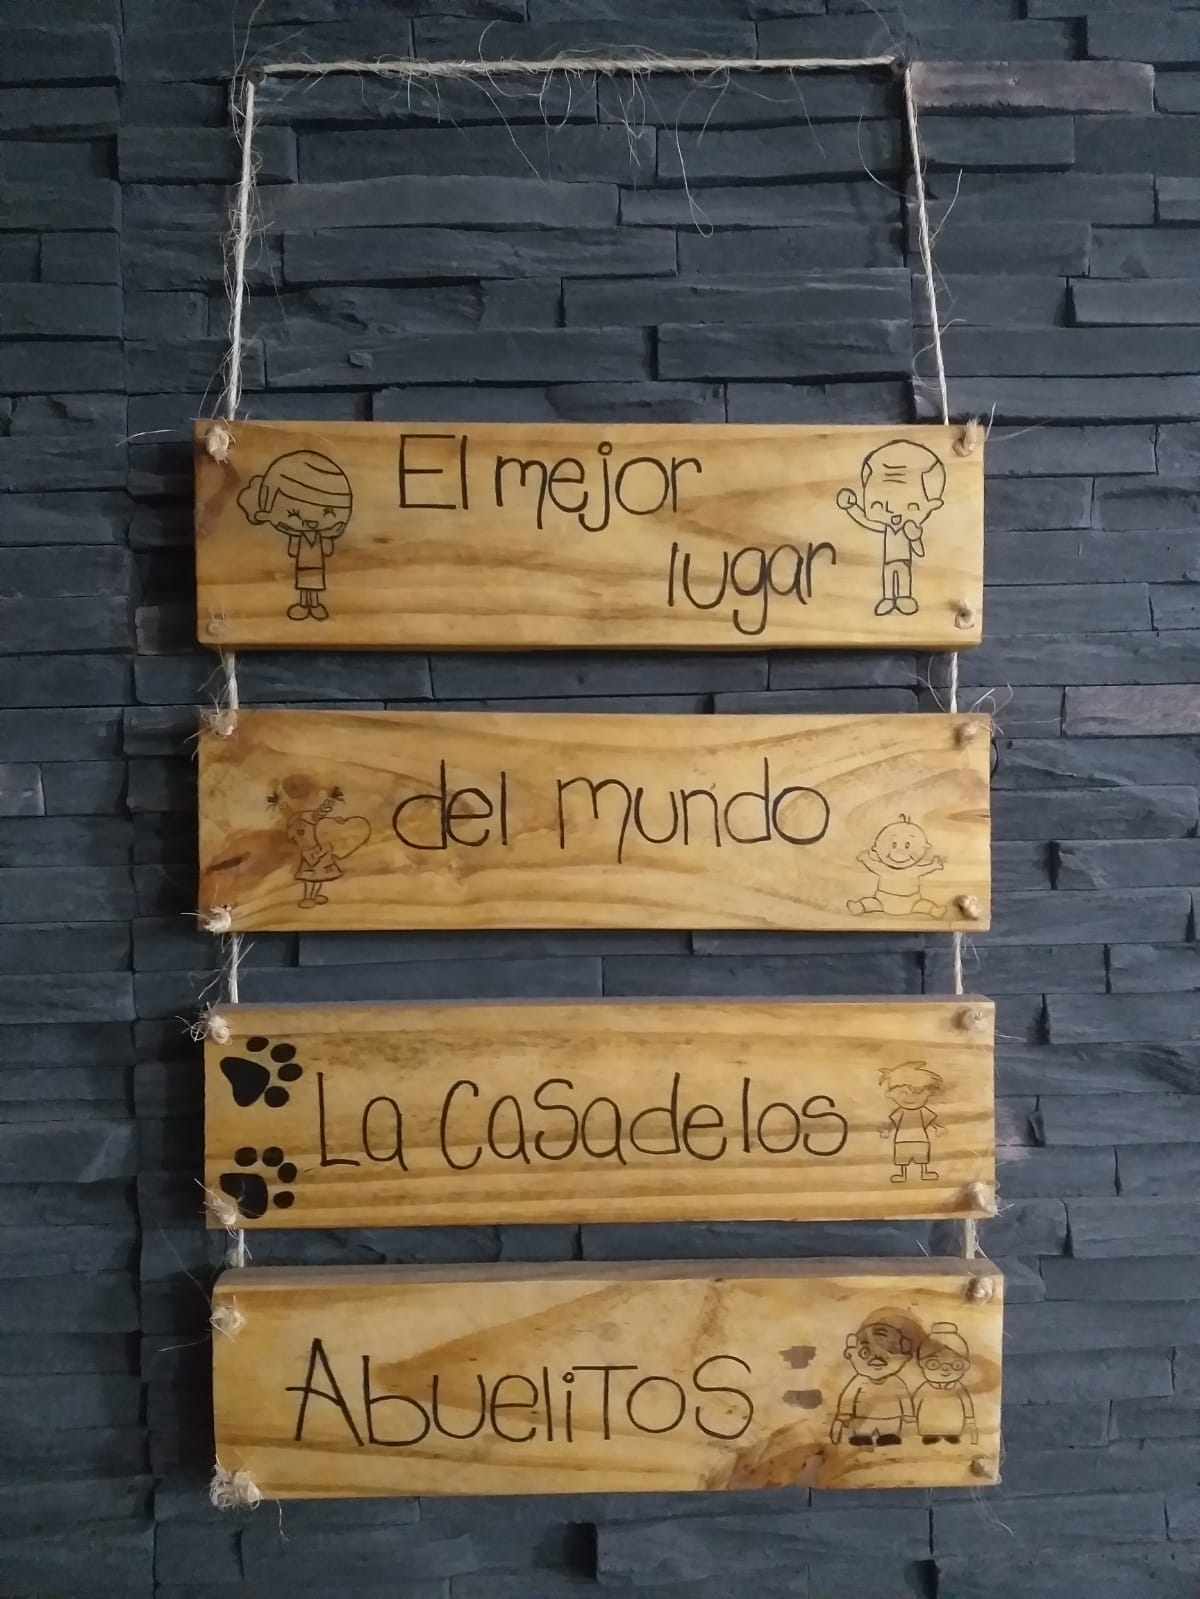 El mejor
lugar
del mundo
La casadelos
AbueliTos